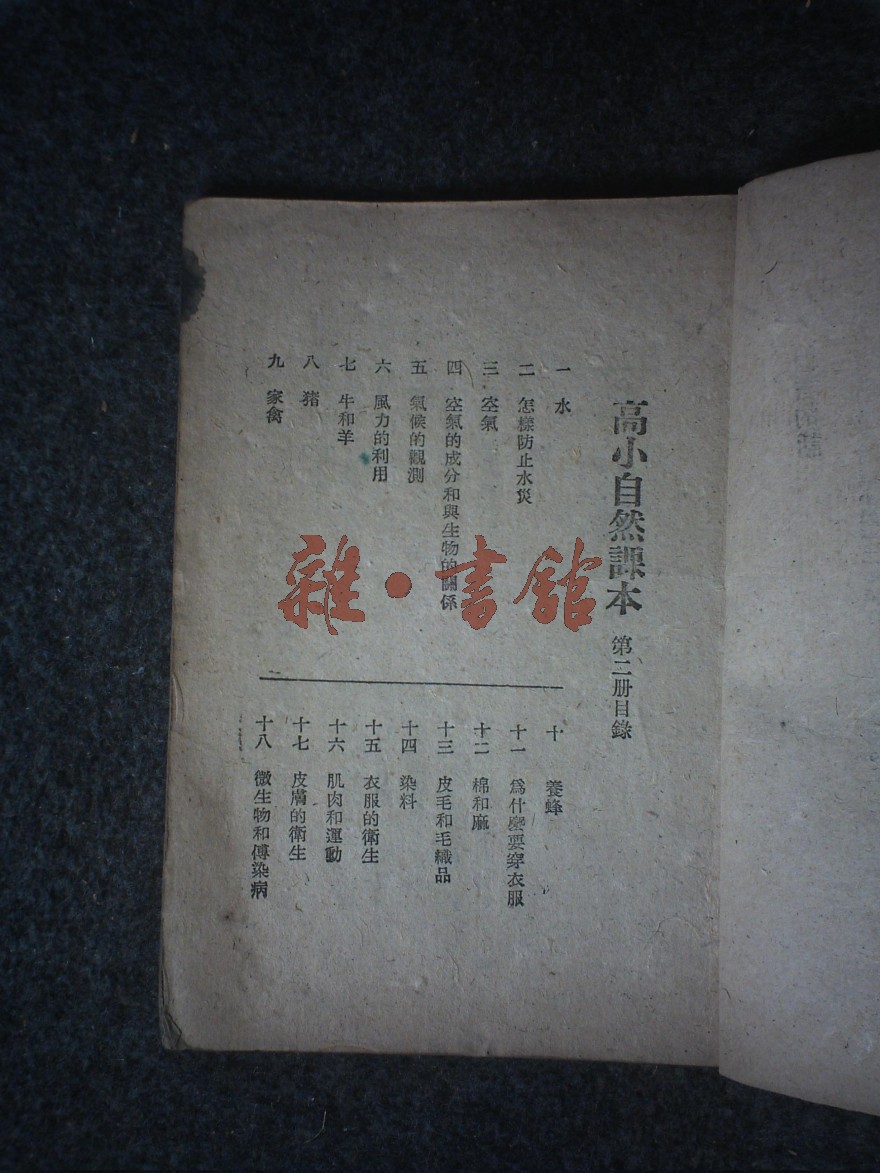 高小自然課本 第二册目錄
一 水
二 怎樣防止水災
三 空氣
四 空氣的成分和與生物的關係
五 氣候的觀測
六 風力的利用
七 牛和羊
八 猪
九 家禽
十 養蜂
十一 爲什麽要穿衣服
十二 棉和麻
十三 皮毛和毛織品
十四 染料
十五 衣服的衛生
十六 肌肉和運動
十七 皮膚的衛生
十八 微生物和傳染病
雜·書館